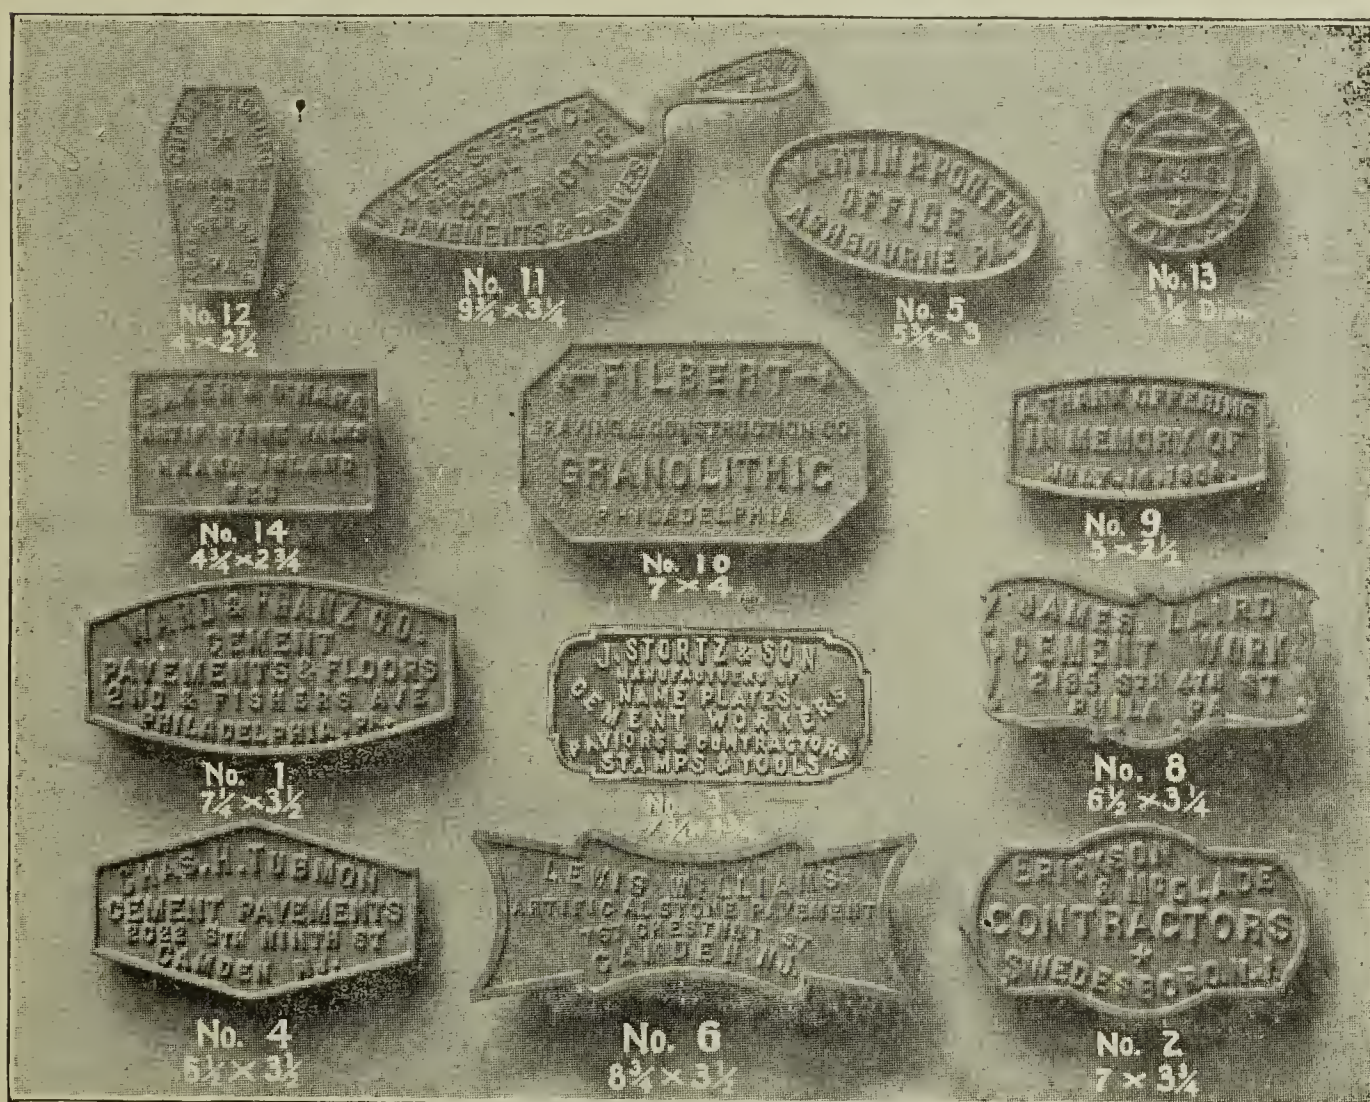 CONCRETE
CO
PA.
No. 12
4 × 2½
CONTRACTOR
PAVEMENTS & DRIVES
No. 11
9¾ × 3¼
MARTIN P. PORTER
OFFICE
ASHBOURNE PA.
No. 5
5¾ × 3
No. 13
3¼ Dia.
BAKER & O'HARA
ARTIF. STONE WALKS
GRAND ISLAND
NEB
No. 14
4¾ × 2¾
FILBERT
PAVING & CONSTRUCTION CO
GRANOLITHIC
PHILADELPHIA
No. 10
7 × 4
A THANK OFFERING
IN MEMORY OF
JULY. 14,
No. 9
5 × 2½
WARD & FRANZ CO.
CEMENT
PAVEMENTS & FLOORS
2ND & FISHERS AVE
PHILADELPHIA, PA.
No. 1
7¼ × 3½
J. STORTZ & SON
MANUFACTUERS OF
NAME PLATES.
CEMENT WORKERS
PAVIORS & CONTRACTORS
STAMPS & TOOLS
No. 3
JAMES LAIRD
CEMENT WORK
2135 STH 4TH ST
PHILA. PA.
No. 8
6½ × 3¼
CHAS. H. TUBMON
CEMENT PAVEMENTS
STH NINTH ST
CAMDEN N.J.
No. 4
6½ × 3½
LEWIS WILLIAMS
ARTIFICAL STONE PAVEMENT
CHESTNUT ST
CAMDEN N.J.
No. 6
8¾ × 3½
ERICKSON
& McGLADE
CONTRACTORS
SWEDESBORO, N.J.
No. 2
7 × 3¾